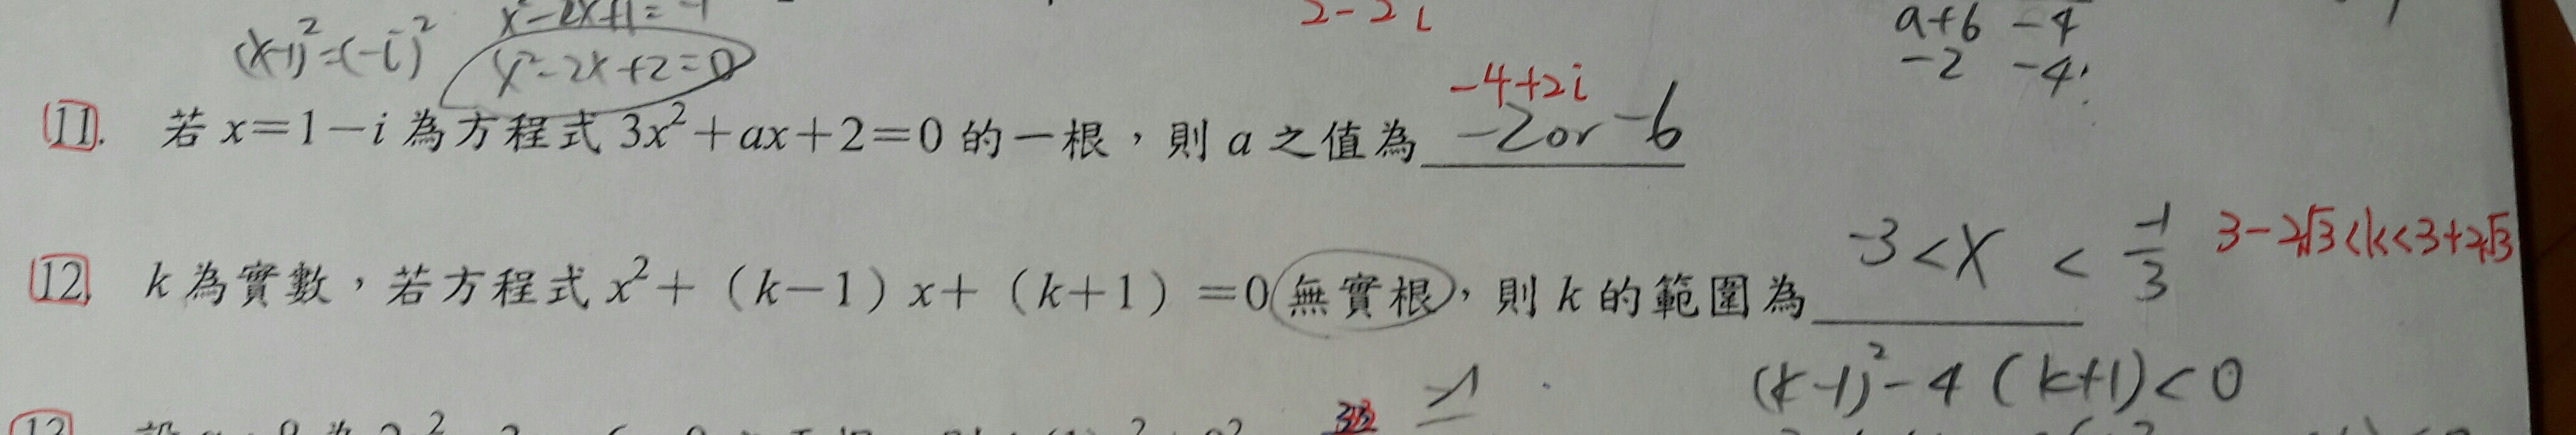 x²-2x+1=-1
2-2i
a+b -4
(x-1)²=(-i)²
x²-2x+2=0
-2 -4
-4+2i
11. 若 x=1-i 為方程式 3x²+ax+2=0 的一根，則 a 之值為 -2or-6
-3<X<-1/3
3-2√3<k<3+2√3
12. k 為實數，若方程式 x²+（k-1）x+（k+1）=0 無實根，則 k 的範圍為
(k-1)²-4(k+1)<0
-1
13